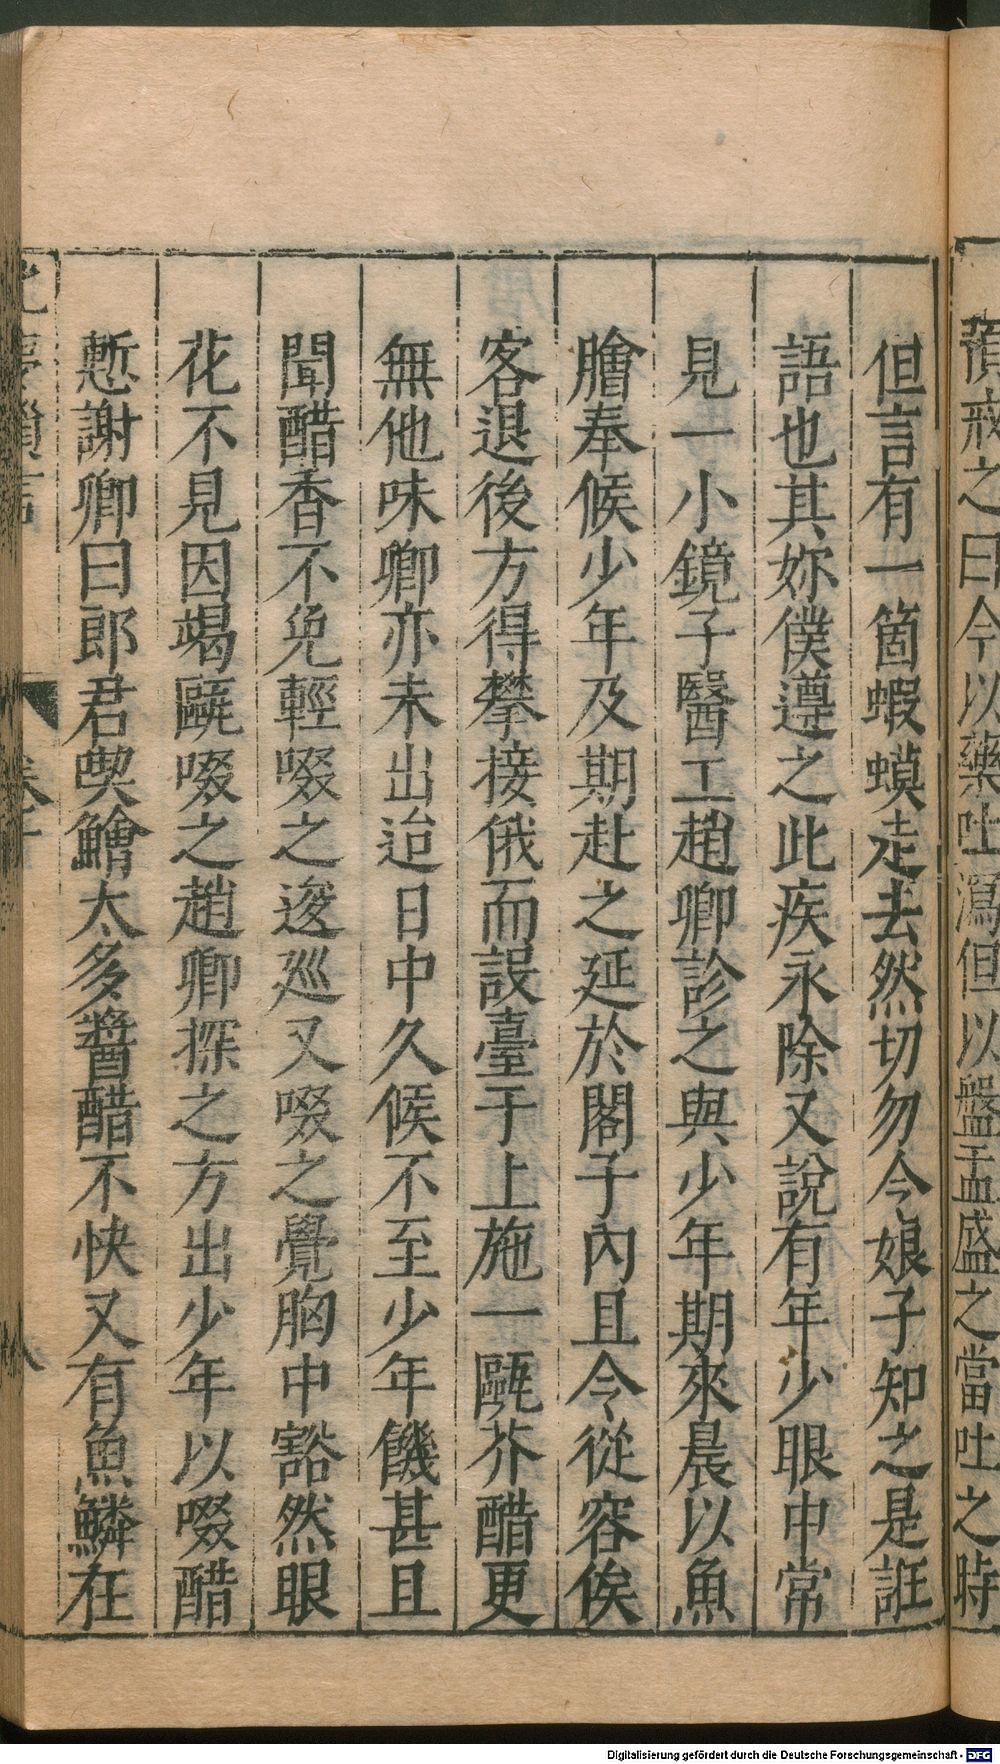 預戒之曰今以藥吐瀉但以盤盂盛之當吐之時
但言有一箇蝦蟆走去然切勿令娘子知之是誑
語也其妳僕遵之此疾永除又說有年少眼中常
見一小鏡子醫工趙卿診之與少年期來晨以魚
膾奉候少年及期赴之延於閣子內且令從容俟
客退後方得攀接俄而設臺于上施一甌芥醋更
無他味卿亦未出迨日中久候不至少年饑甚且
聞醋香不免輕啜之逡巡又啜之覺胸中豁然眼
花不見因竭甌啜之趙卿探之方出少年以啜醋
慙謝卿曰郎君喫鱠太多醬醋不快又有魚鱗在
Digitalisierung gefördert durch die Deutsche Forschungsgemeinschaft - DFG